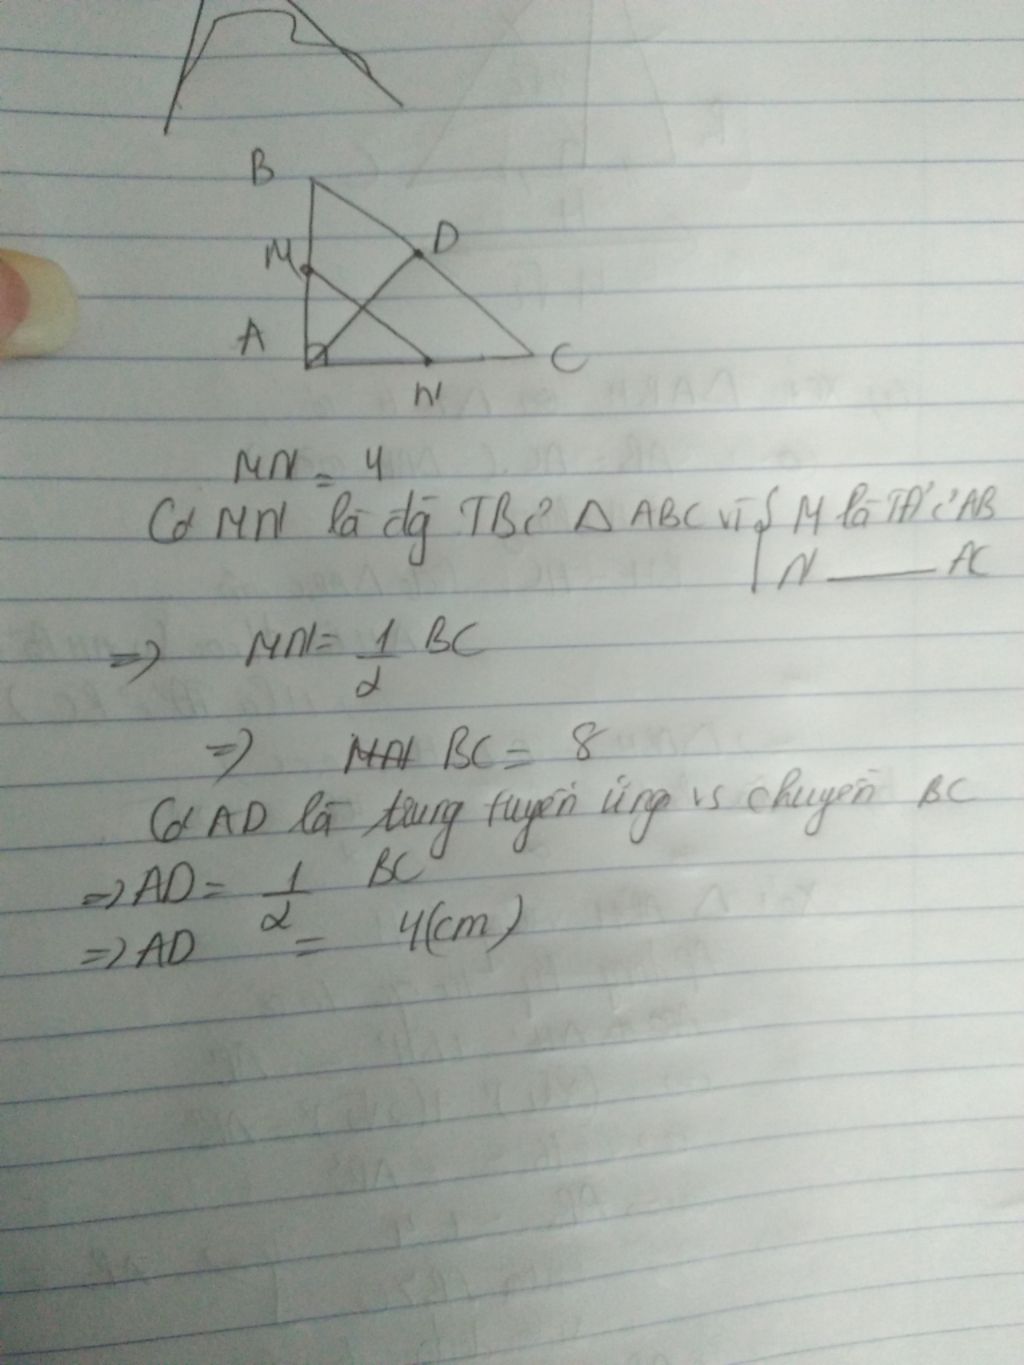 B
M
D
A
C
N
MN = 4
Có MN là đg TB c' Δ ABC vì { M là TĐ' c' AB
N ——— AC
=> MN = 1/2 BC
=> BC = 8
Có AD là trung tuyến ứng vs chuyền BC
=> AD = 1/2 BC
=> AD = 4(cm)